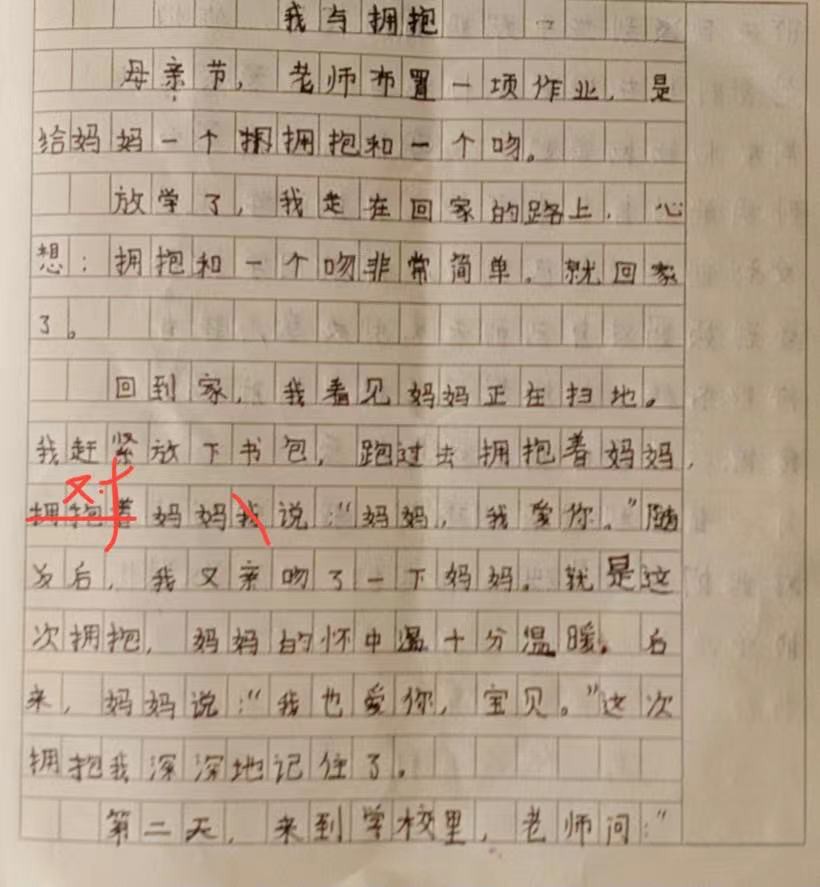 我与拥抱
母亲节，老师布置一项作业，是
给妈妈一个拥拥抱和一个吻。
放学了，我走在回家的路上，心
想：拥抱和一个吻非常简单。就回家
了。
回到家，我看见妈妈正在扫地。
我赶紧放下书包，跑过去拥抱着妈妈，
对
拥抱着妈妈我说：“妈妈，我爱你。”随
发后，我又亲吻了一下妈妈。就是这
次拥抱，妈妈的怀中温十分温暖。后
来，妈妈说：“我也爱你，宝贝。”这次
拥抱我深深地记住了。
第二天，来到学校里，老师问：“